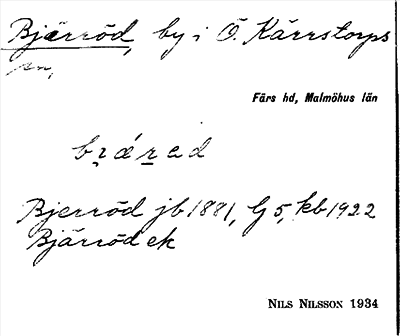 Bjärröd, by i Ö. Kärrstorps
sn,
Färs hd, Malmöhus län
bɪ̯ǽɪ̯ed
Bjerröd jb 1881, G5, kb 1922
Bjärröd ek
NILS NILSSON 1934